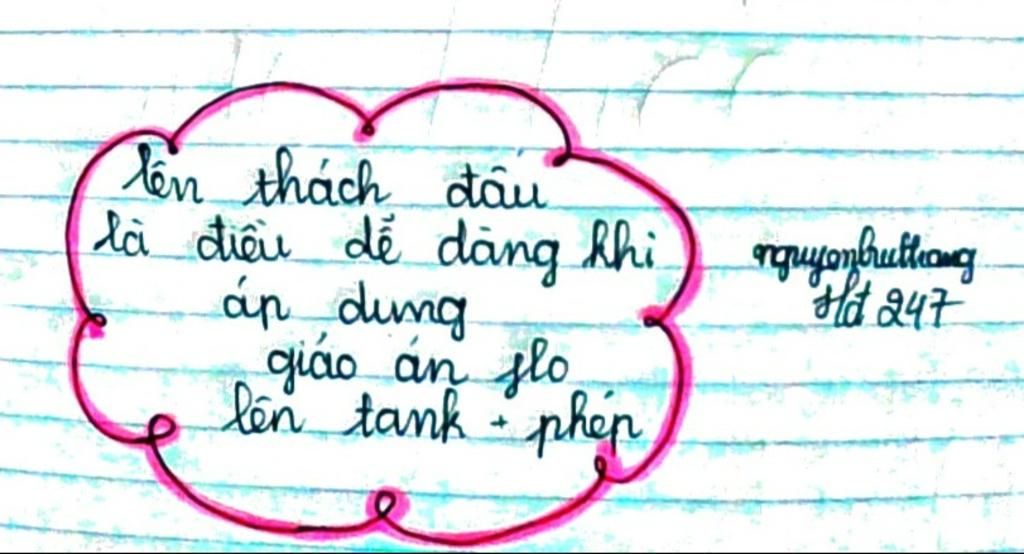 lên thách đấu
là điều dễ dàng khi
áp dung
giáo án flo
lên tank + phép
nguyenhuuthang
Hd 247